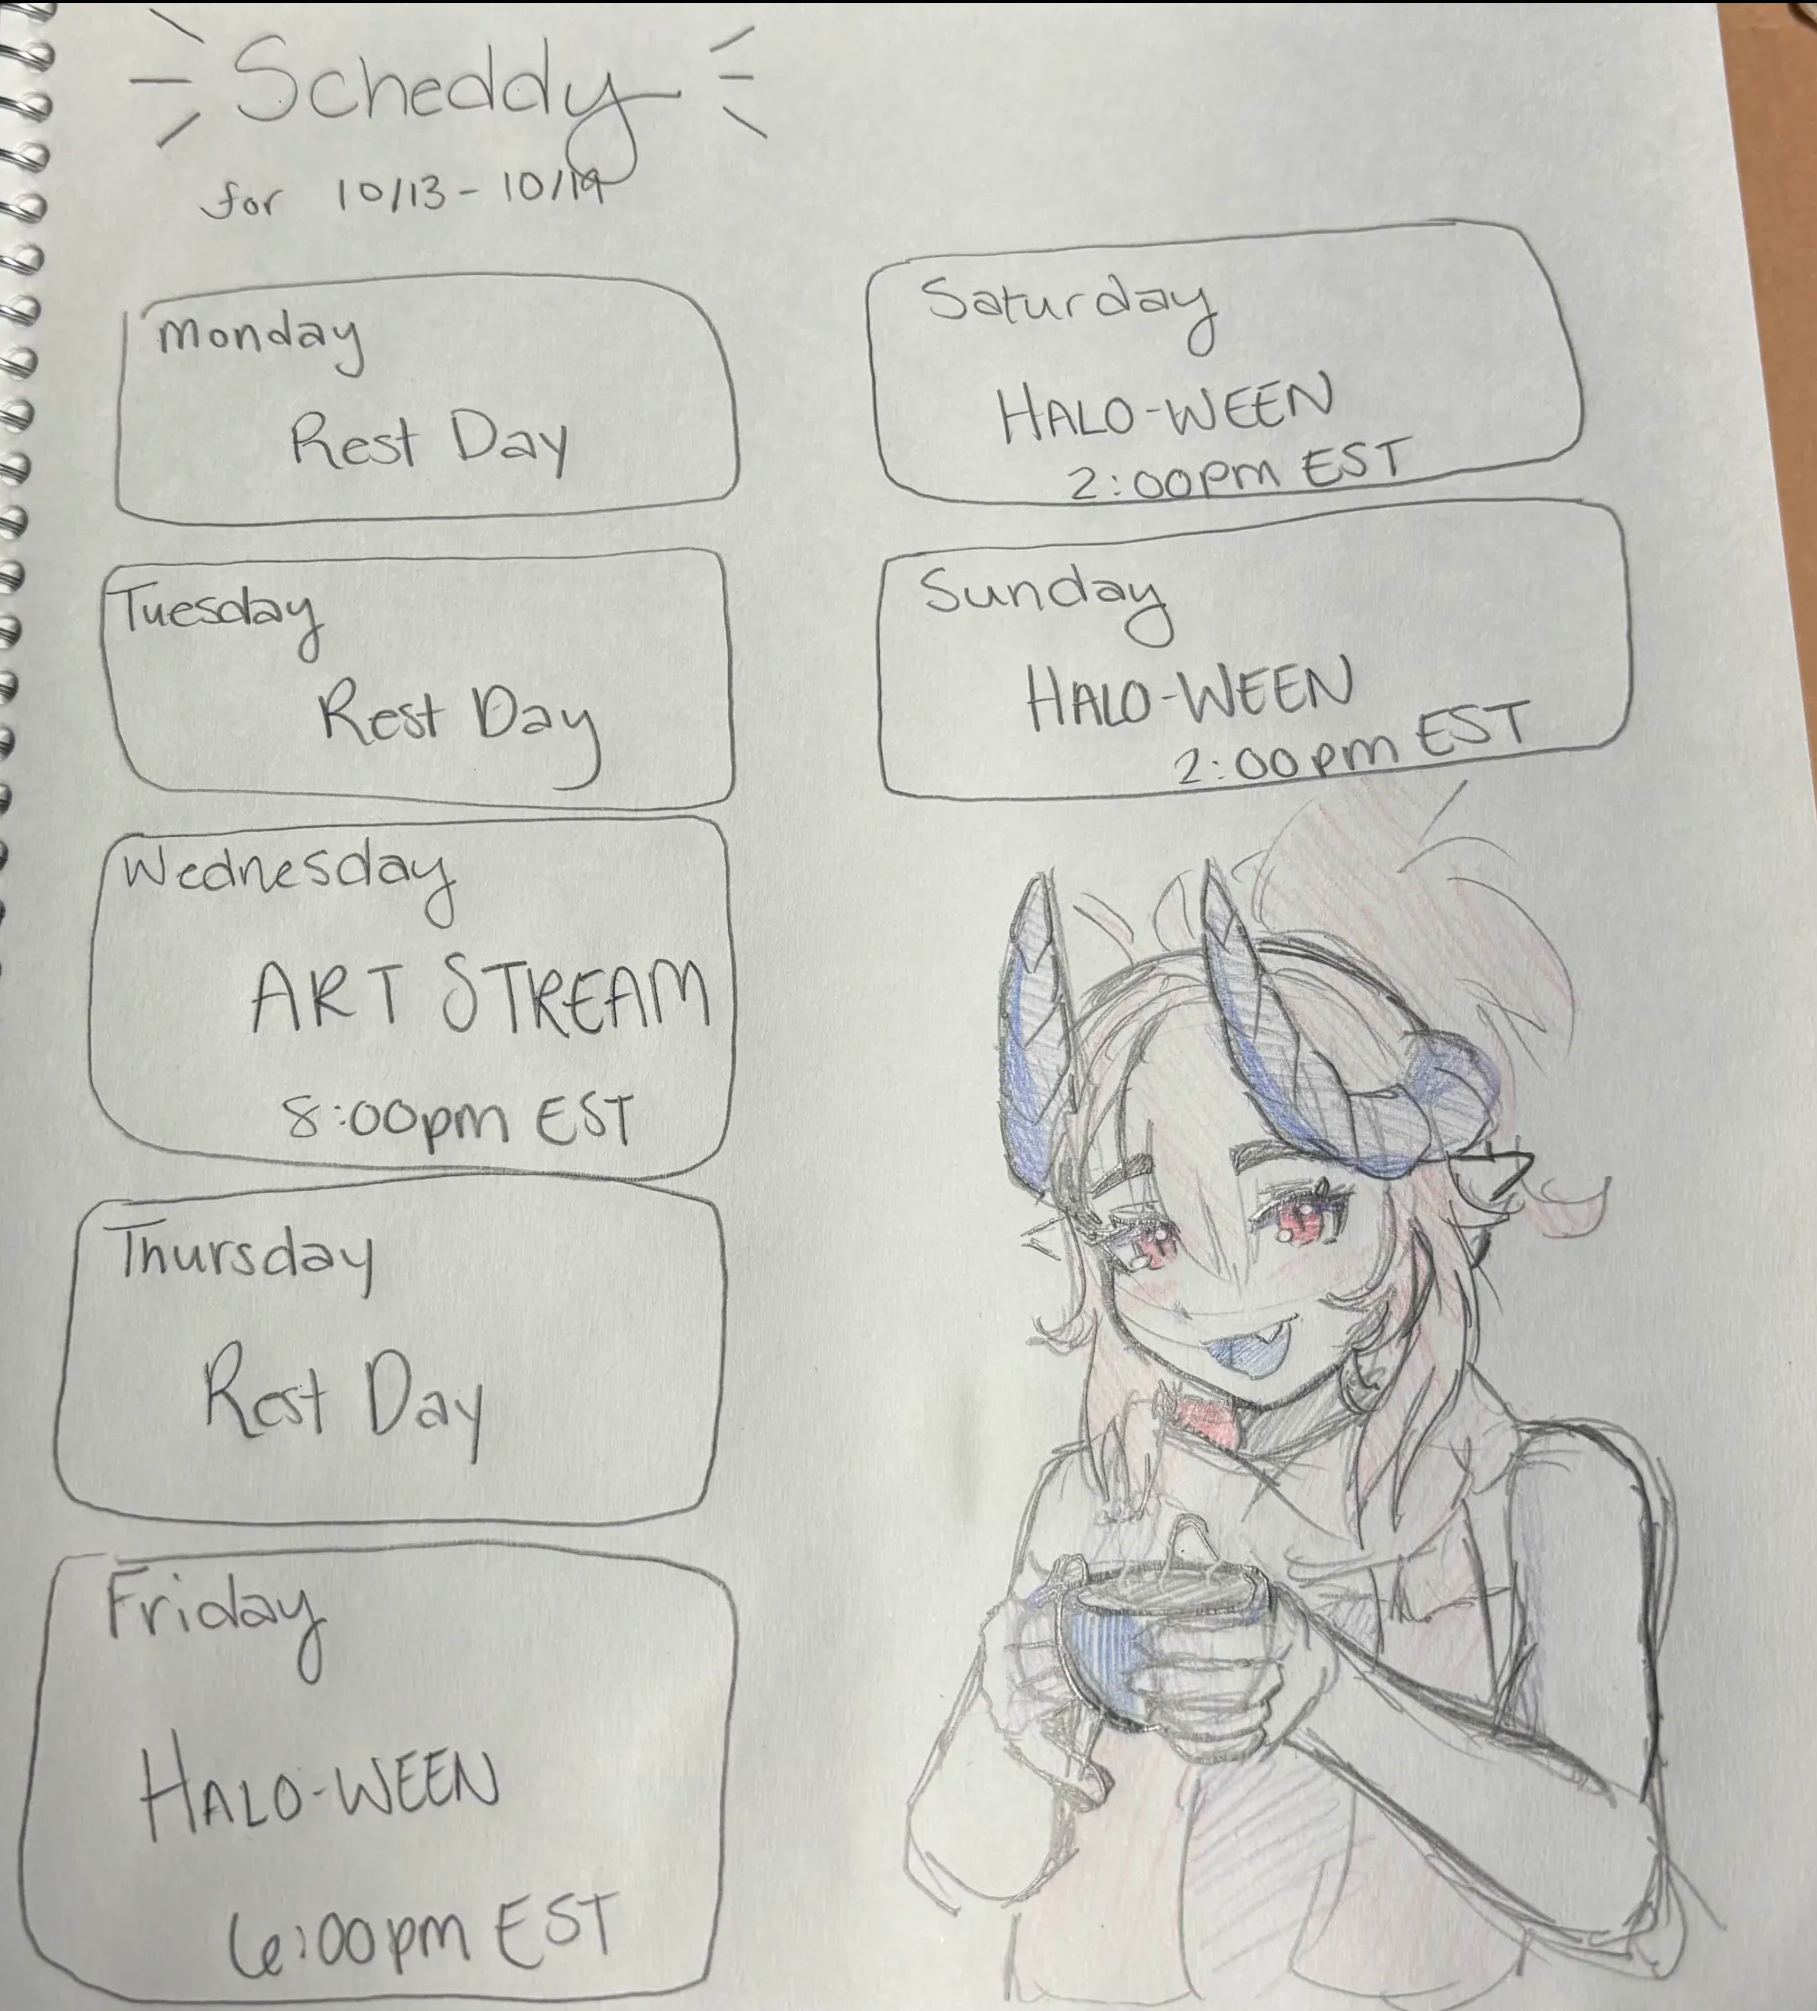 Scheddy
for 10/13 - 10/19
Monday
Rest Day
Tuesday
Rest Day
Wednesday
ART STREAM
8:00pm EST
Thursday
Rest Day
Friday
HALO-WEEN
6:00pm EST
Saturday
HALO-WEEN
2:00pm EST
Sunday
HALO-WEEN
2:00pm EST